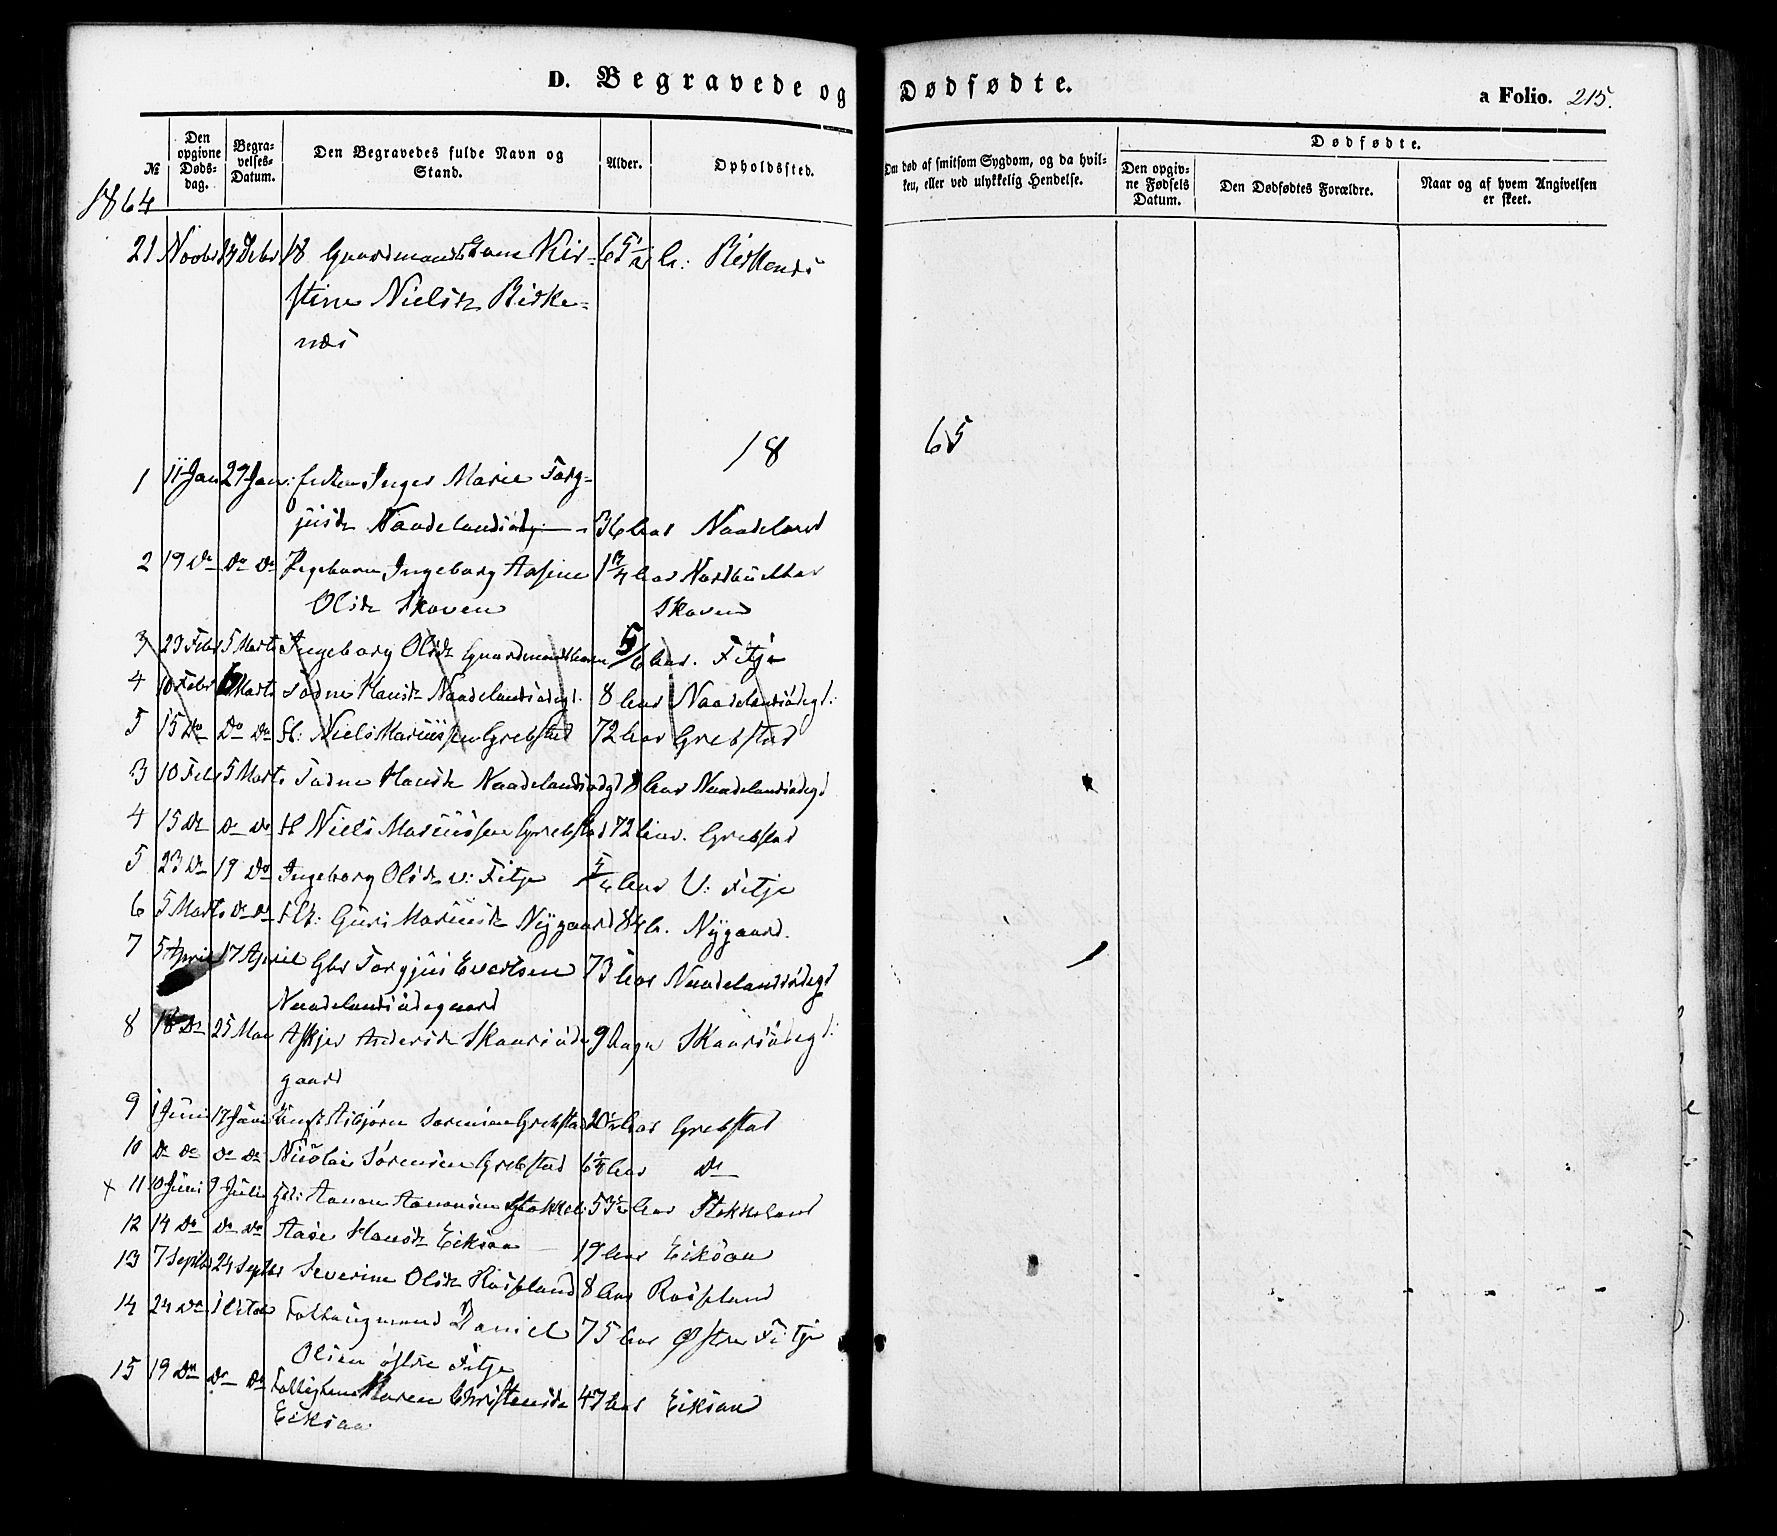 D. Begravede og Dødfødte.
a Folio. 215.
№
Den opgivne Døds-dag.
Begra-velses-Datum.
Den Begravedes fulde Navn og Stand.
Alder.
Opholdssted.
Om død af smitsom Sygdom, og da hvil-
ken, eller ved ulykkelig Hendelse.
Dødfødte.
Den opgiv-ne Fødsels Datum.
Den Dødfødtes Forældre.
Naar og af hvem Angivelsen er skeet.
1864
21 Novbr Debr Gaardmands Kir- 65 1/2 Birkenes
stine Nielsd. Birke-
næs
18 65
1 11 Jan 27 Jan: Inger Marie Torg-
jusd. Naadelandsødeg. - 36 Aar Naadeland
2 19 Do Do Do Pigebarn Ingeborg Aasine 1 Aar
Olsd. Skoven Skoven
3 23 Febr 5 Marts Ingeborg Olsd. Gaardmandsbarn 5/6 Aar. Fitje
4 10 Febr 6 Marts Todne Hansd. Naadelandsødegd: 8 Aar Naadelandsødegd:
5 15 Do Do Do Niels Mariussen Grebstad 72 Aar Grebstad
3 10 Febr 5 Marts Todne Hansd. Naadelandsødegd 8 Aar Naadelandsødegd
4 15 Do Do Do Niels Mariussen Grebstad 72 Aar. Grebstad
5 23 Do 19 Do Ingeborg Olsd. v: Fitje 5/6 Aar V: Fitje
6 5 Marts Do Do Guri Mariusd. Nygaard 84 A. Nygaard.
7 5 April 17 April Gbr Torgjus Evertsen 73 Aar Naadelandsødegd
Naadelandsødegaard
8 18 Do 25 Mai Askjer Andersd. Skaarsøde 9 Dage Skaarsødegd:
gaard
9 1 Juni 17 Juni Asbjørn Sørensen Grebstad 20 1/2 Aar Grebstad
10 Do Do Do Do Nicolai Sørensen Grebstad 6 1/2 Aar Do
x 11 10 Juni 9 Julie Aanon Aanonsen Stokkel: 53 1/2 Aar Stokkeland
12 14 Do Do Do Aase Hansd. Eiksaa 19 Aar Eiksaa
13 7 Septbr 24 Septbr Severine Olsd. Rosseland 8 Aar Rosseland
14 24 Do 1 Octobr Daniel 75 Aar Østre Fitje
Olsen østre Fitje
15 19 Do Do Do Maren Christensd. 47 Aar Eiksaa
Eiksaa